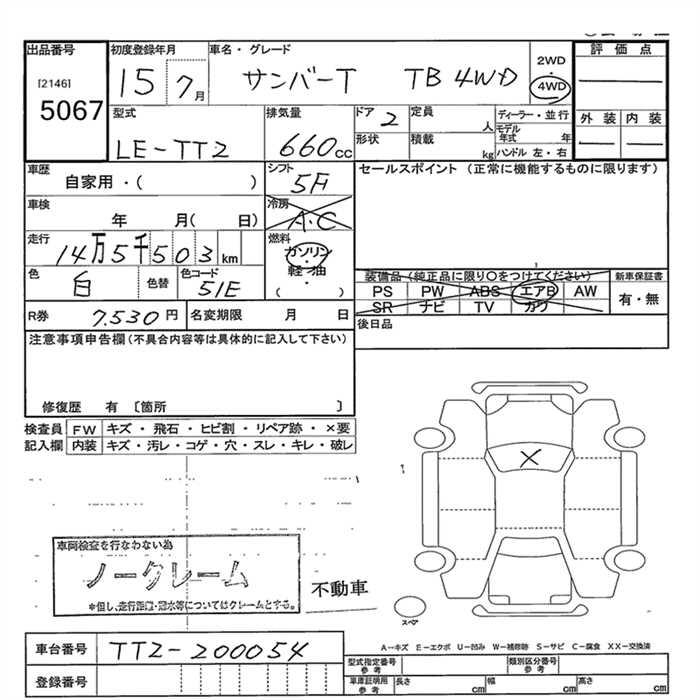 出品番号 初度登録年月 車名・グレード 評価点
[2146]
5067
15 7月 サンバーT TB 4WD 2WD
4WD
型式 排気量 ドア 定員 ディーラー・並行 外装 内装
LE-TT2 660cc 2 人 モデル年式 年
形状 積載 kg ハンドル 左・右
車歴 シフト セールスポイント (正常に機能するものに限ります)
自家用・( ) 5F
車検 冷房
年 月( 日) A.C
走行 燃料
14万5千503km ガソリン
・
軽油
・
( )
色 色替 色コード
白 51E
装備品(純正品に限り○をつけてください) 新車保証書
PS PW ABS エアB AW 有・無
SR ナビ TV カワ
R券 7.530円 名変期限 月 日
後日品
注意事項申告欄(不具合内容等は具体的に記入して下さい)
修復歴 有 〔箇所 〕
検査員 FW キズ・飛石・ヒビ割・リペア跡・×要
記入欄 内装 キズ・汚レ・コゲ・穴・スレ・キレ・破レ
×
車両検査を行なわない為
ノークレーム
*但し、走行距離・冠水等についてはクレームとする。
不動車
スペア
A-キズ E-エクボ U-凹み W-補修跡 S-サビ C-腐食 XX-交換済
車台番号 TT2-200054
型式指定番号 参考 類別区分番号 参考
登録番号 車庫証明用 参考 長さ cm 幅 cm 高さ cm